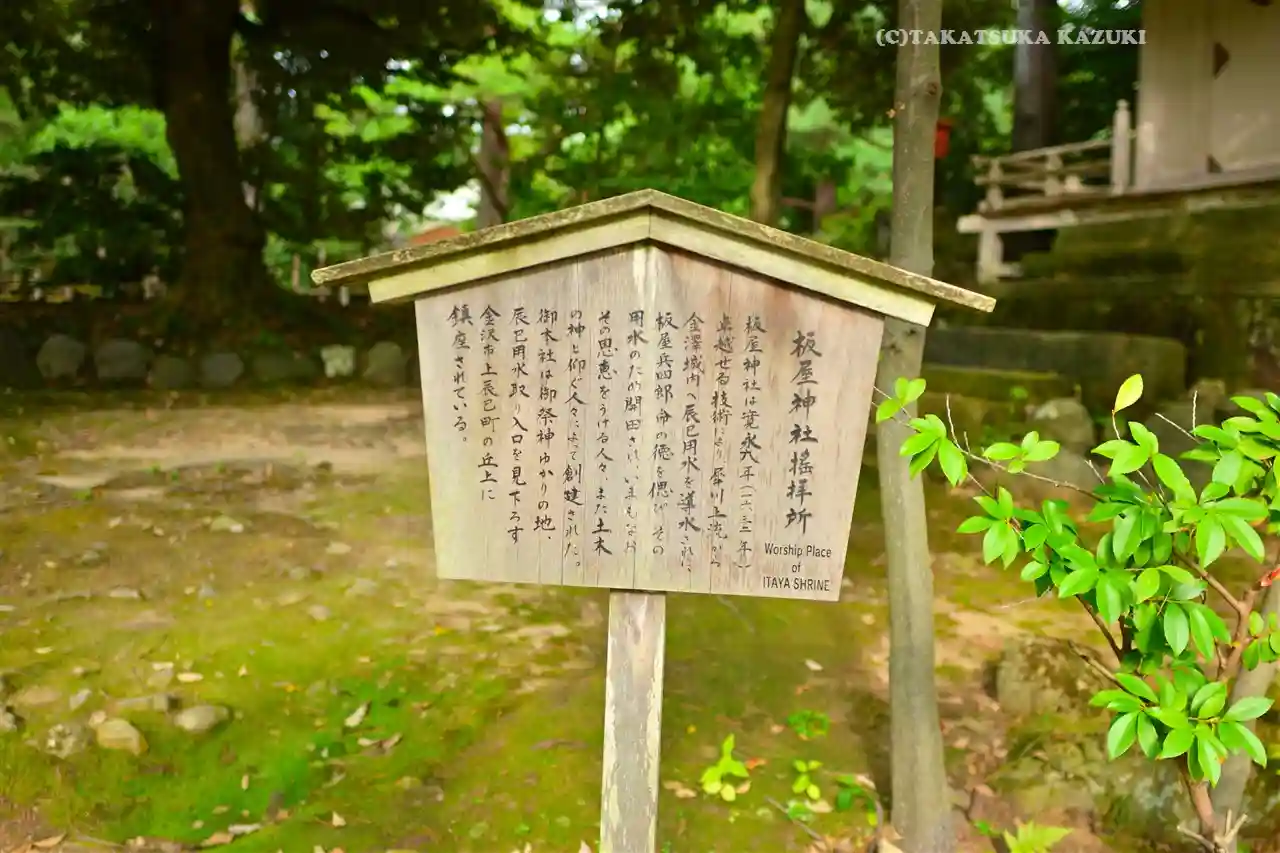 (C)TAKATSUKA KAZUKI
板屋神社揺拝所
Worship Place
of
ITAYA SHRINE
板屋神社は寛永八年(一六三一年)
卓越せる技術により犀川上流から
金澤城内へ辰巳用水を導水された
板屋兵四郎命の徳を偲びその
用水のため開田され、いまもなお
その恩恵をうける人々、また土木
の神と仰ぐ人々によって創建された。
御本社は御祭神ゆかりの地、
辰巳用水取り入口を見下ろす
金沢市上辰巳町の丘上に
鎮座されている。